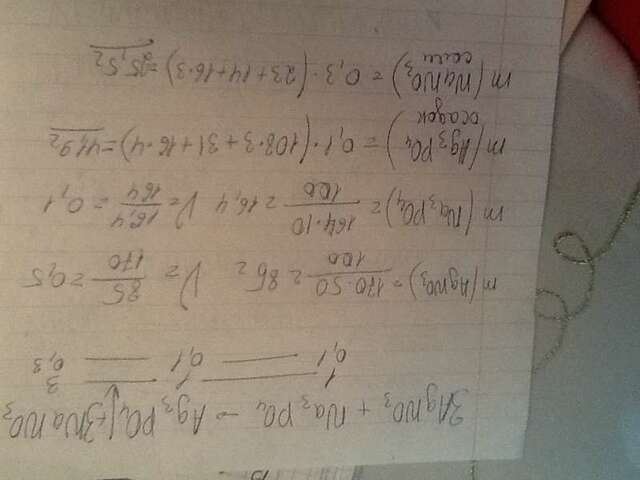 3AgNO₃ + Na₃PO₄ → Ag₃PO₄↓ + 3NaNO₃
1 —— 1 —— 3
0,1 —— 0,1 —— 0,3
m(AgNO₃) = 170·50/100 = 85г ν = 85/170 = 0,5
m(Na₃PO₄) = 164·10/100 = 16,4 ν = 16,4/164 = 0,1
m(Ag₃PO₄) = 0,1·(108·3+31+16·4) = 41,9г
осадок
m(NaNO₃) = 0,3·(23+14+16·3) = 25,5г
соли